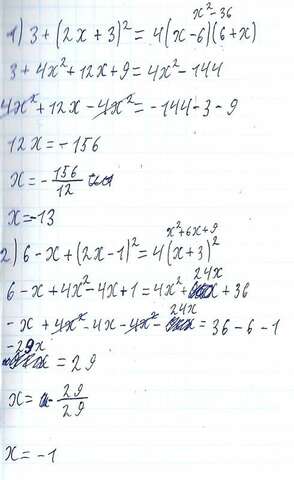 x²-36
1) 3+(2x+3)²=4(x-6)(6+x)
3+4x²+12x+9=4x²-144
4x²+12x-4x²=-144-3-9
12x=-156
x=-156/12
x=-13
x²+6x+9
2) 6-x+(2x-1)²=4(x+3)²
24x
6-x+4x²-4x+1=4x²+ +36
24x
-x+4x²-4x-4x²- =36-6-1
-29x =29
x=-29/29
x=-1